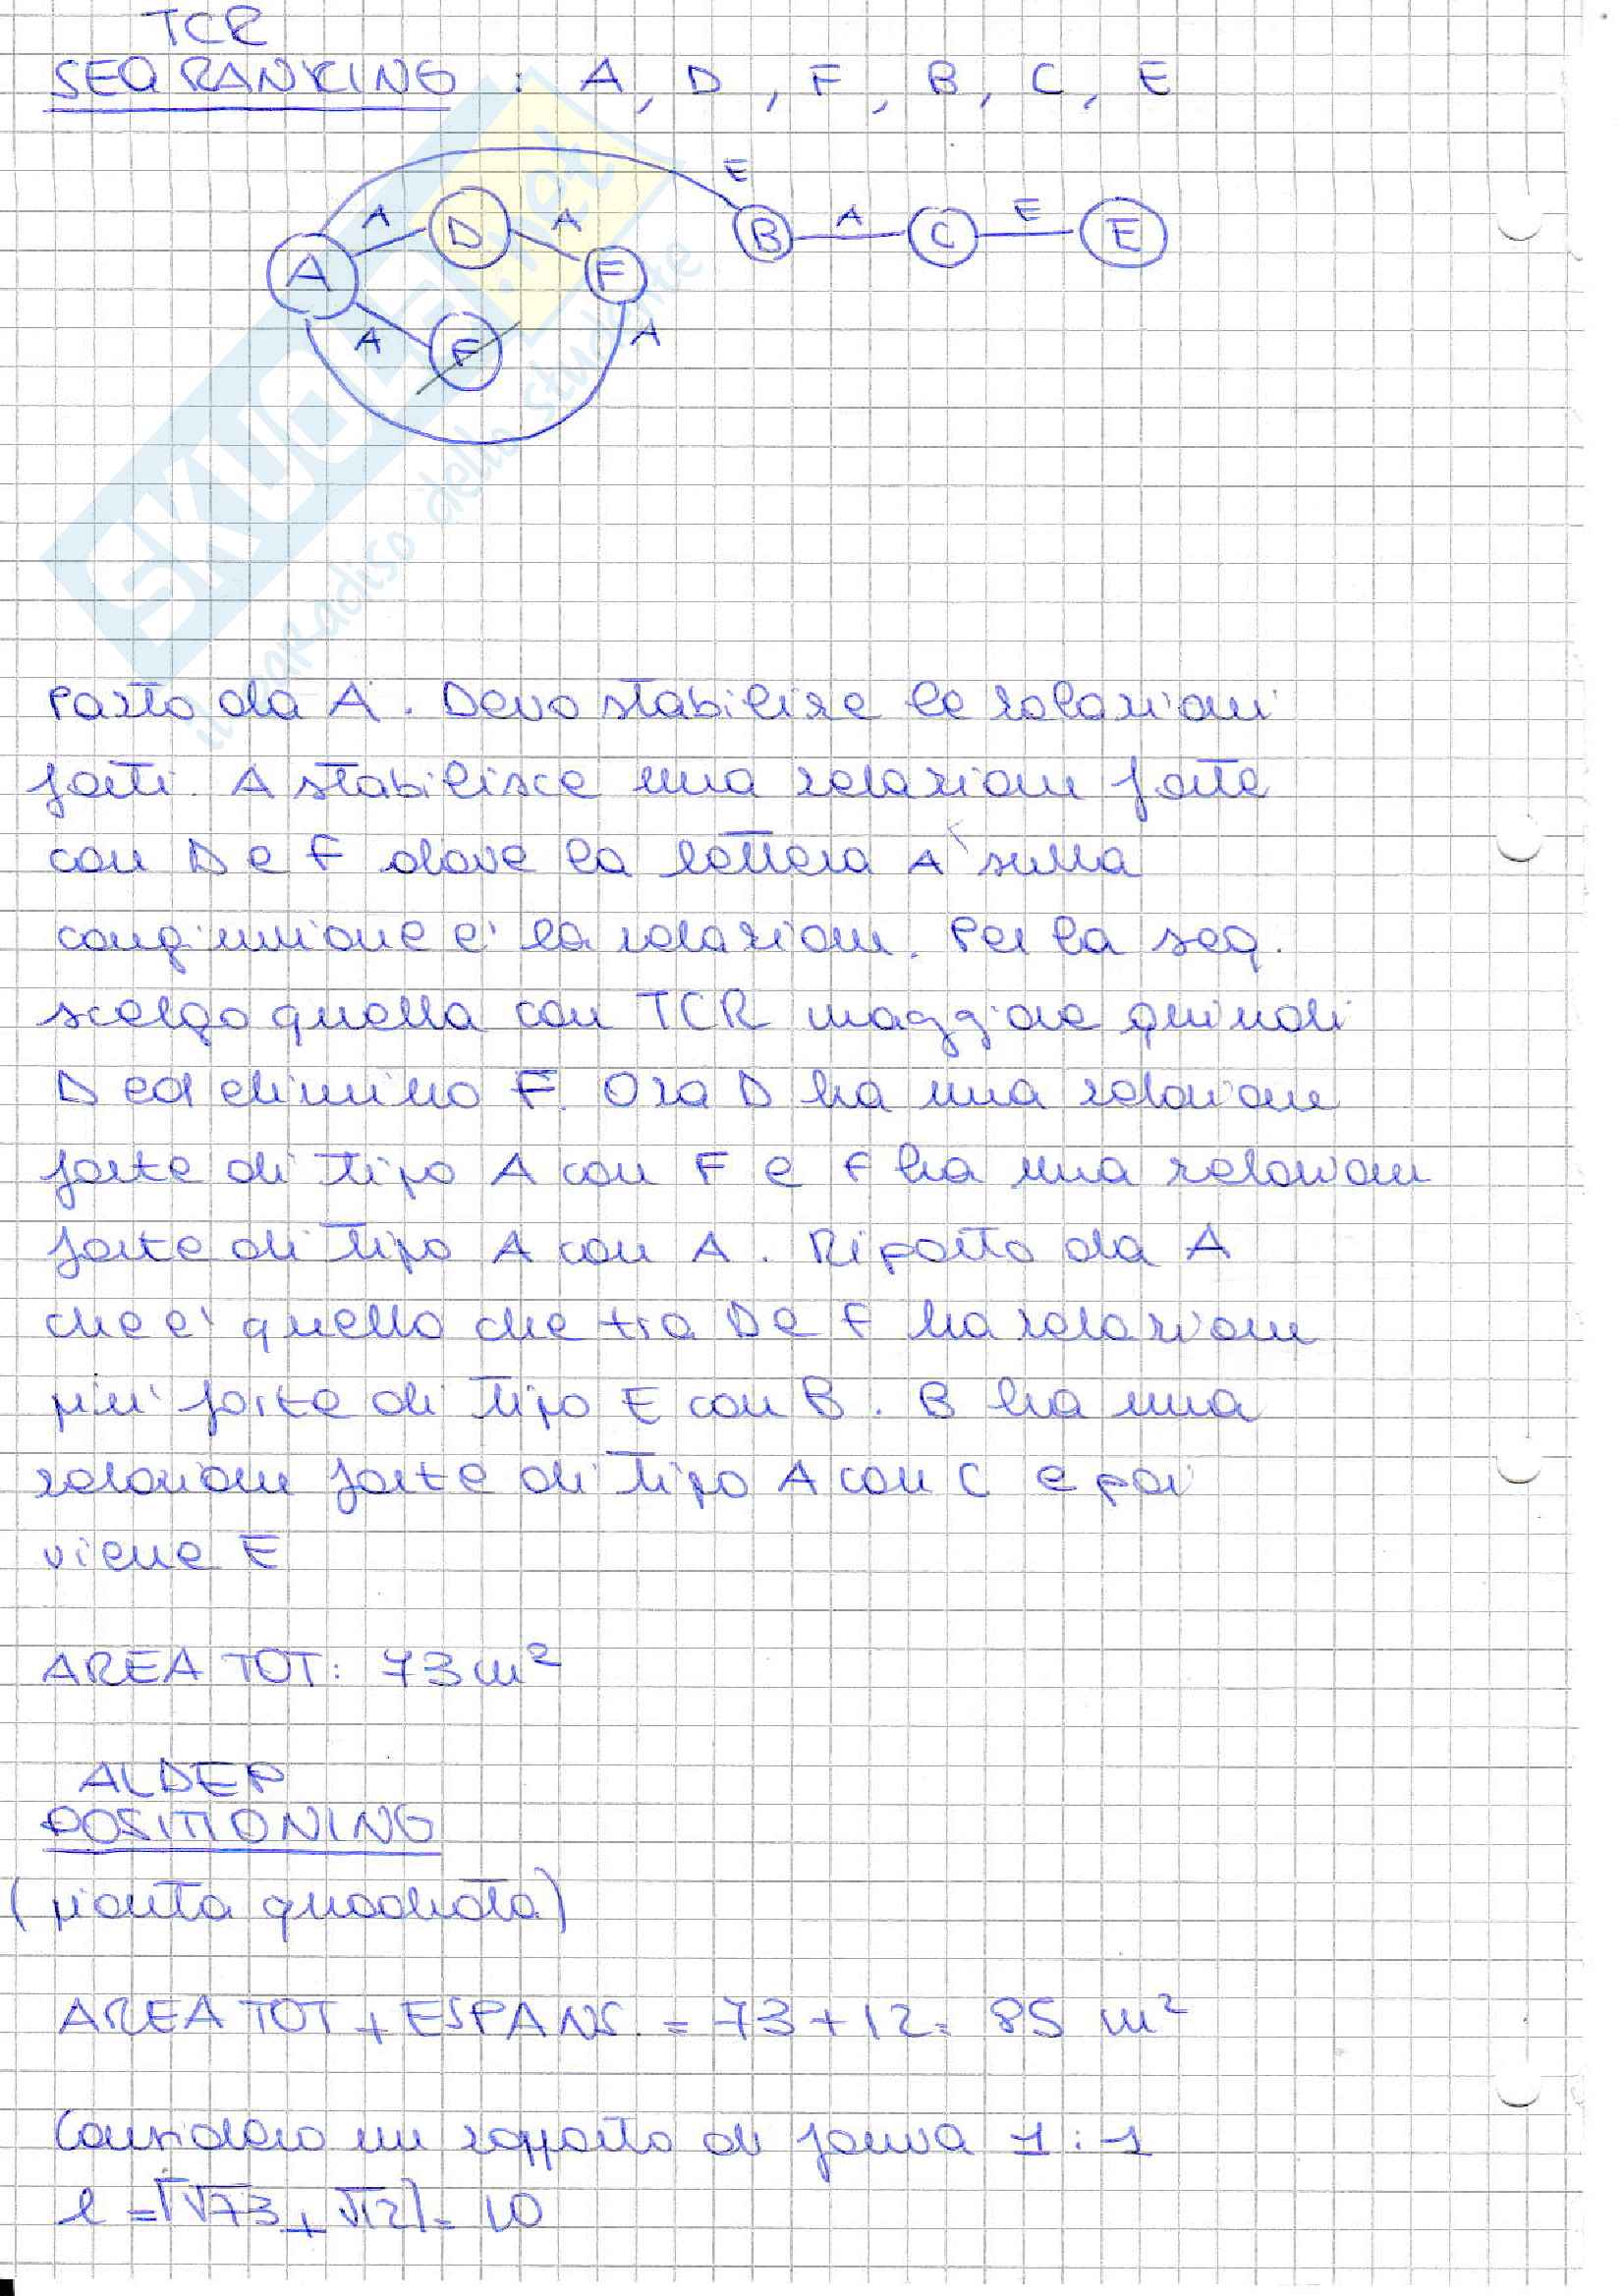 TCR
SEQ RANKING : A, D, F, B, C, E
E
A D A B A C E E
A F
A F A
SKUOLA.net
il paradiso dello studente
Parto da A. Devo stabilire le relazioni
forti. A stabilisce una relazione forte
con D e F dove la lettera A sulla
congiunzione e' la relazione. Per la seq.
scelgo quella con TCR maggiore quindi
D ed elimino F. Ora D ha una relazione
forte di tipo A con F e F ha una relazione
forte di tipo A con A. Riparto da A
che e' quello che tra D e F ha relazione
piu' forte di tipo E con B. B ha una
relazione forte di tipo A con C e poi
viene E
AREA TOT: 73 m²
ALDEP
POSITIONING
(pianta quadrata)
AREA TOT + ESPANS. = 73 + 12 = 85 m²
Considero un rapporto di forma 1:1
l = ⌈√73 + √12⌉ = 10